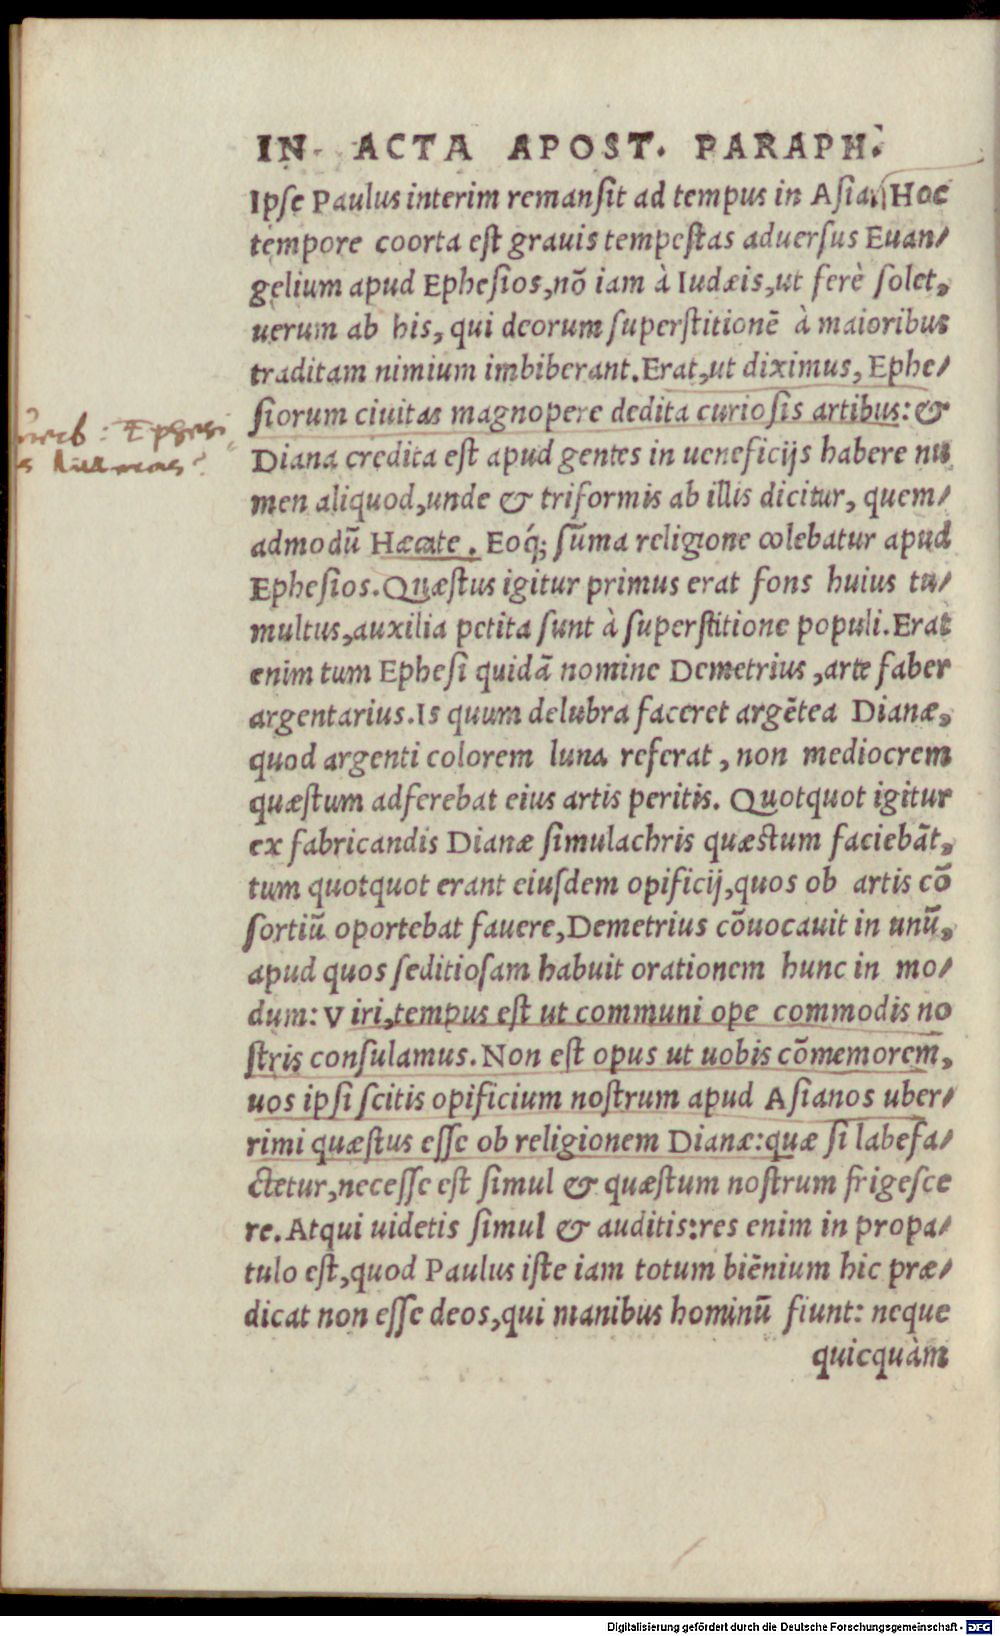 IN ACTA APOST. PARAPH.
Ipse Paulus interim remansit ad tempus in Asia. Hoc
tempore coorta est grauis tempestas aduersus Euan/
gelium apud Ephesios,nō iam à Iudæis,ut ferè solet,
uerum ab his, qui deorum superstitionē à maioribus
traditam nimium imbiberant.Erat,ut diximus, Ephe/
siorum ciuitas magnopere dedita curiosis artibus: &
Diana credita est apud gentes in ueneficijs habere nu
men aliquod,unde & triformis ab illis dicitur, quem/
admodū Hæcate. Eoq́; sūma religione colebatur apud
Ephesios.Quæstus igitur primus erat fons huius tu/
multus,auxilia petita sunt à superstitione populi.Erat
enim tum Ephesi quidā nomine Demetrius ,arte faber
argentarius.Is quum delubra faceret argētea Dianæ,
quod argenti colorem luna referat , non mediocrem
quæstum adferebat eius artis peritis. Quotquot igitur
ex fabricandis Dianæ simulachris quæstum faciebāt,
tum quotquot erant eiusdem opificij,quos ob artis cō
sortiū oportebat fauere,Demetrius cōuocauit in unū,
apud quos seditiosam habuit orationem hunc in mo/
dum: Viri,tempus est ut communi ope commodis no
stris consulamus. Non est opus ut uobis cōmemorem,
uos ipsi scitis opificium nostrum apud Asianos uber/
rimi quæstus esse ob religionem Dianæ:quæ si labefa/
ctetur,necesse est simul & quæstum nostrum frigesce
re. Atqui uidetis simul & auditis:res enim in propa/
tulo est,quod Paulus iste iam totum biēnium hic præ/
dicat non esse deos,qui manibus hominū fiunt: neque
quicquàm
Ephesi
Digitalisierung gefördert durch die Deutsche Forschungsgemeinschaft - DFG